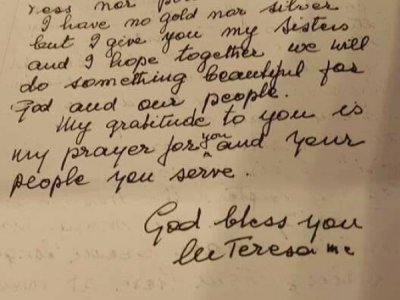 ness nor
I have no gold nor silver
but I give you my Sisters
and I hope together we will
do something beautiful for
God and our people.
My gratitude to you is
my prayer for you and your
people you serve.
God bless you
M Teresa mc